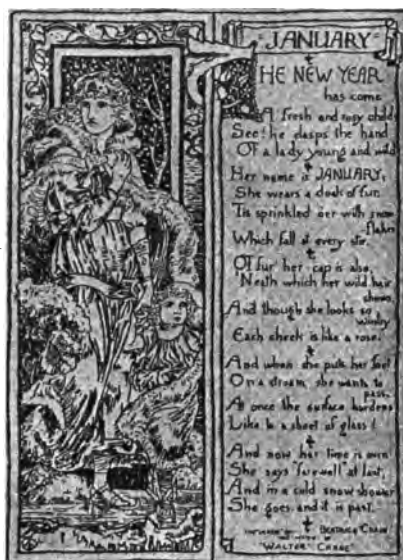 JANUARY
THE NEW YEAR
has come
A fresh and rosy child;
See! he clasps the hand
Of a lady young and wild
Her name is JANUARY;
She wears a cloak of fur,
Tis sprinkled oer with snow-
flakes
Which fall at every stir.
Of fur her cap is also,
Neath which her wild hair
shows,
And though she looks so
wintry
Each cheek is like a rose.
And when she puts her foot
On a stream she wants to
pass,
At once the surface hardens
Like to a sheet of glass!
And now her time is over
She says "farewell" at last,
And in a cold snow shower
She goes, and it is past.
BEATRICE CRANE
WALTER CRANE